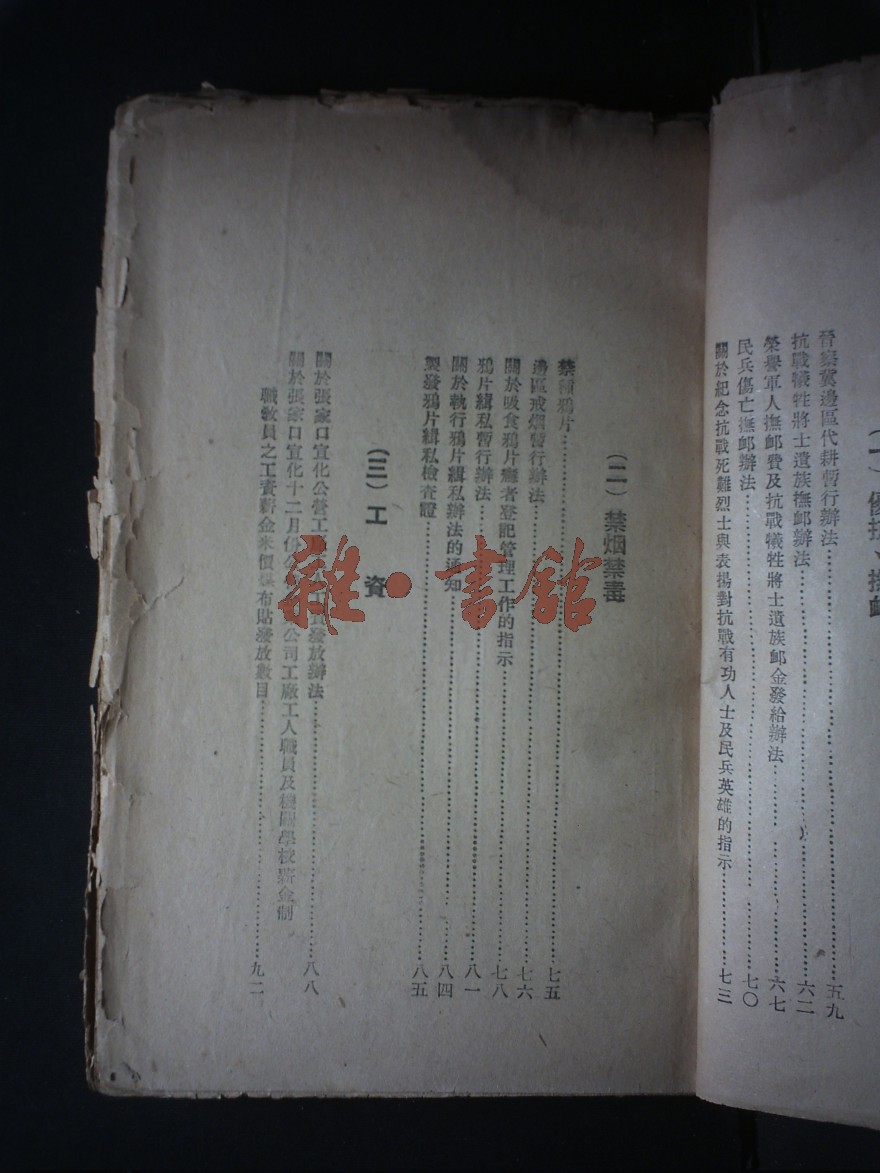 晉察冀邊區代耕暫行辦法……五九
抗戰犧牲將士遺族撫卹辦法……六二
榮譽軍人撫卹費及抗戰犧牲將士遺族卹金發給辦法……六七
民兵傷亡撫卹辦法……七〇
關於紀念抗戰死難烈士與表揚對抗戰有功人士及民兵英雄的指示……七三
(二)禁烟禁毒
禁種鴉片……七五
邊區戒烟暫行辦法……七六
關於吸食鴉片癮者登記管理工作的指示……七八
鴉片緝私暫行辦法……八一
關於執行鴉片緝私辦法的通知……八四
製發鴉片緝私檢查證……八五
(三)工 資
關於張家口宣化公營工資發放辦法……八八
關於張家口宣化十二月份公公司工廠工人職員及機關學校薪金制
職教員之工資薪金米價煤布貼發放數目……九二
雜·書館